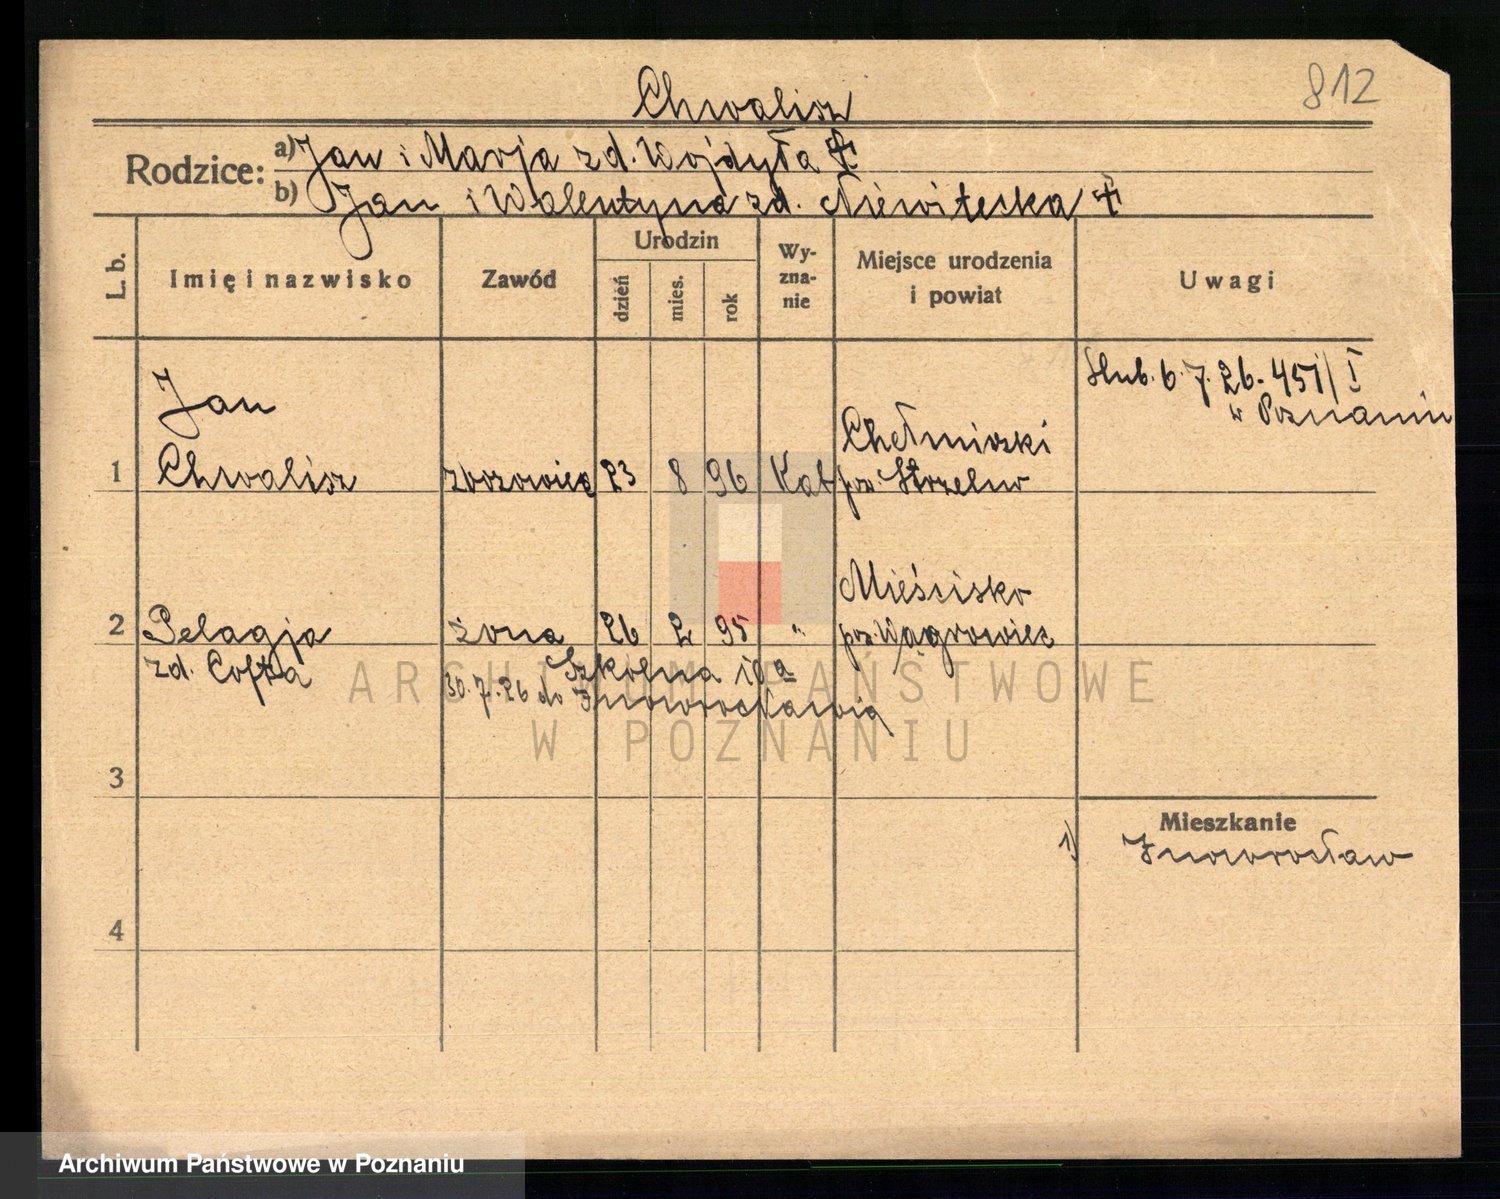 812
Chwalisz
Rodzice:
a) Jan i Marja zd. Wojdyła ‡
b) Jan i Walentyna zd. Niewitecka †
L. b.
Imię i nazwisko
Zawód
Urodzin
dzień
mies.
rok
Wy-
zna-
nie
Miejsce urodzenia
i powiat
Uwagi
Ślub. 6. 7. 26. 451/I
w Poznaniu
1
Jan
Chwalisz
23 8 96 Kat
Chełmiczki
pow. Strzelno
2
Pelagja
zd. Cofta
żona 26 2 95 "
Mieścisko
pow. Wągrowiec
Szkolna 10a
30.7.26 do Inowrocławia
3
4
Mieszkanie
1) Inowrocław
ARCHIWUM PAŃSTWOWE
W POZNANIU
Archiwum Państwowe w Poznaniu